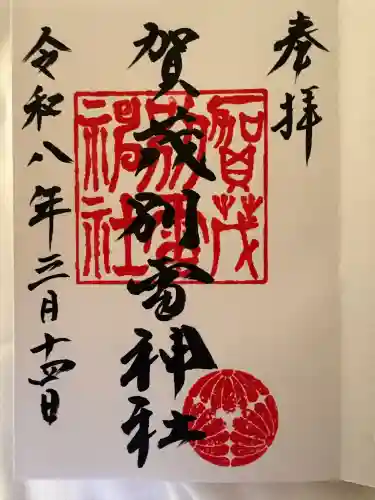 奉拝
賀茂別雷神社
令和八年三月十四日
賀茂
別雷
神社